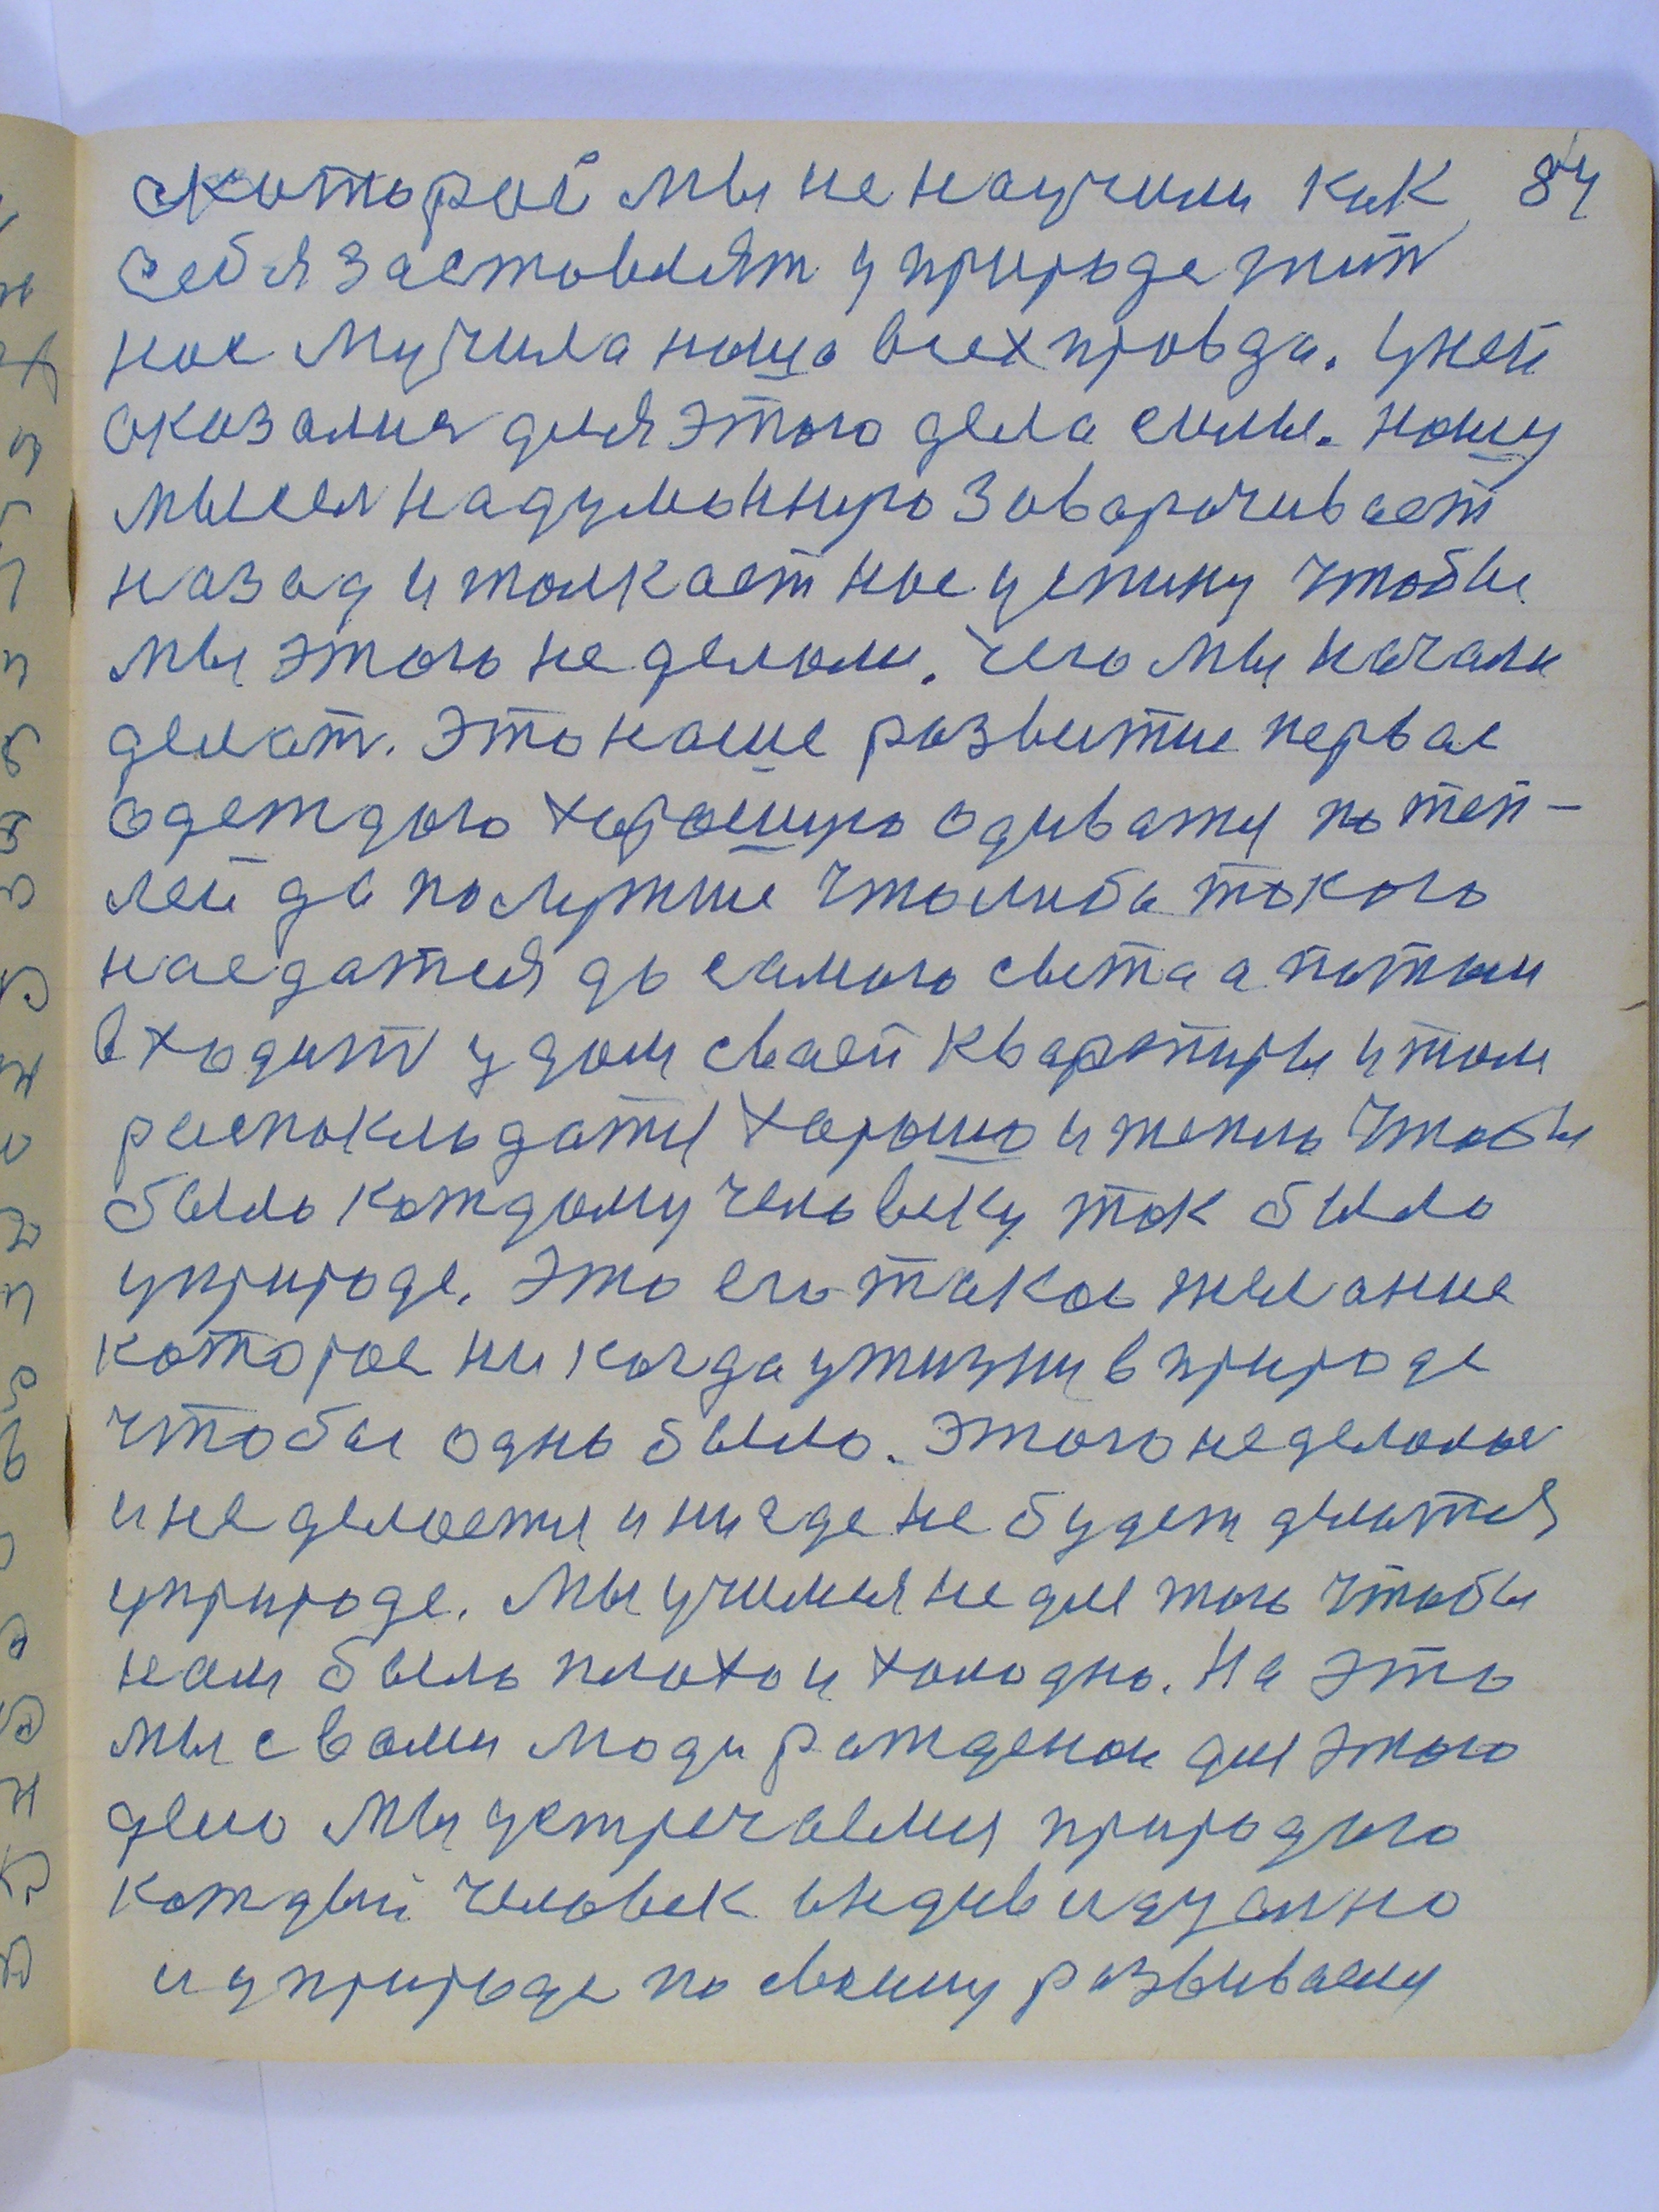 84
с которой мы не научили как
себя заставлят у природе жит
нас мучила наша всех правда. У ней
оказалис для этого дела силы. Нашу
мысел надуманную заварачивает
назад и толкает нас у спину чтобы
мы этого не делали. Чего мы начали
делат. Это наше развитие первае
одеждою хорошую одиватся по теп-
лей да полутше что либа такого
наедатся до самого света а потом
входит у дом сваей квартиры и там
распокладатся харашо и тепло чтобы
было каждому человеку так было
у природе. Это его такое желание
каторое ни когда у жизни в природе
чтобы одно было. Этого не делалос
и не делается и нигде не будет делатся
у природе. Мы учимся не для того чтобы
нам было плохо и холодно. На это
мы с вами люди рожденои для этого
дело мы устречаемся природою
каждый человек индивидуално
и у природе по своему развиваемся